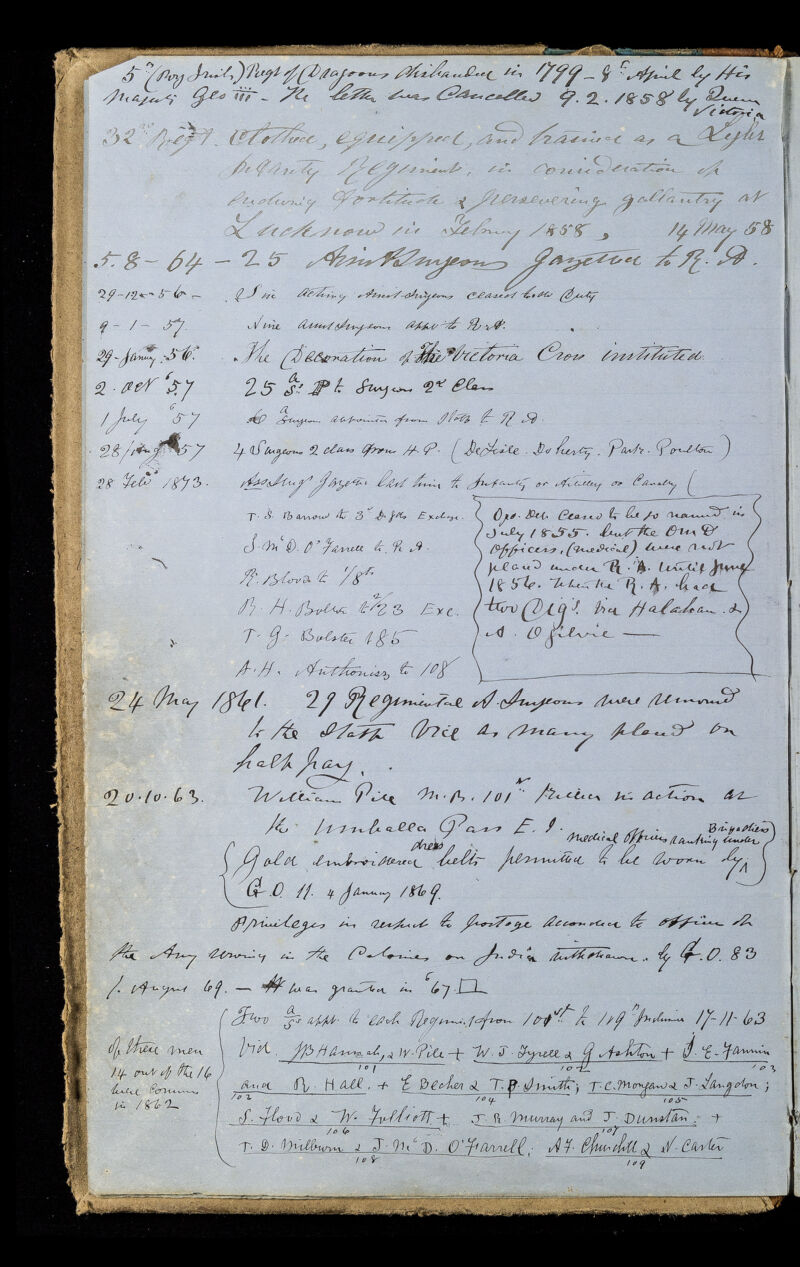 5th (Roy Irish) Regt of Dragoons disbanded in 1799 - 8th April by His
Majesty Geo III - The letter was Cancelled 9.2.1858 by Queen
Victoria
32nd Regt. Clothed, equipped, and trained as a Light
Infantry Regiment, in consideration of
enduring fortitude & persevering gallantry at
Lucknow in 1858, 14 May 58
5.8-64 - 25 Assist Surgeons Gazetted to R.A.
29-12-56 - acting Assist Surgeons ceased to do Duty
9-1-57. Nine assist Surgeons appd to R.A.
29-Janny. 56. The Decoration of The Victoria Cross instituted
2. Oct '57 25 Surgeons 2d Class
1 July '57 Surgeon from Staff to R.A.
28/ Aug 57 4 Surgeons 2 class from H.P. (DeLisle. Doherty. Park. Poulton)
28 Feb 1873. Ass Surgs Gazetted last time to Infantry or Artillery or Cavalry (
T. S. Barrow to 3d Exchge.
J. McD. O'Farrell to R.A.
R. Blood to 1/8th
R. H. Bolton to 2/23 Exc.
T. G. Bolster 1 & 5
A. H. Anthonisz to 108
Ord. Dep. Ceased to be so named in
July 1855. but the Ord
Officers, (medical) were not
placed under R.A. until June
1856. When the R.A. had
two Digs. viz Halahan &
A. Ogilvie —
24 May 1861. 29 Regimental A. Surgeons were removed
to the Staff vice as many placed on
half pay.
20.10.63. William Pile M.B. 101st Killed in action at
the Umballa Pass E.I.
Gold embroidered dress belts permitted to be worn by medical Officers ranking under Brigadiers
G.O. 11. 4 January 1869.
Privileges in respect to postage accorded to officers of
the Army serving in the Colonies or India withdrawn. by G.O. 83
1. August 69. - It was granted in '67
Two A/S appt. to each Regiment from 101st to 109th Indian 17-11-63
Vid. JB Hannah, & W. Pile + W. J. Tyrell & G Ashton + J. E. Fannin
101 102 103
and R. Hall. + E Becher & T. B. Smith; T. C. Morgan & J. Langdon;
102 104 105
S. Flood & W. Folliott + J. R. Murray and J. Dunstan; +
106 107
T. D. Milburn & J. McD. O'Farrell; A F. Churchill & N. Carter
108 109
Of these men
14 out of the 16
were Commd
in 1862